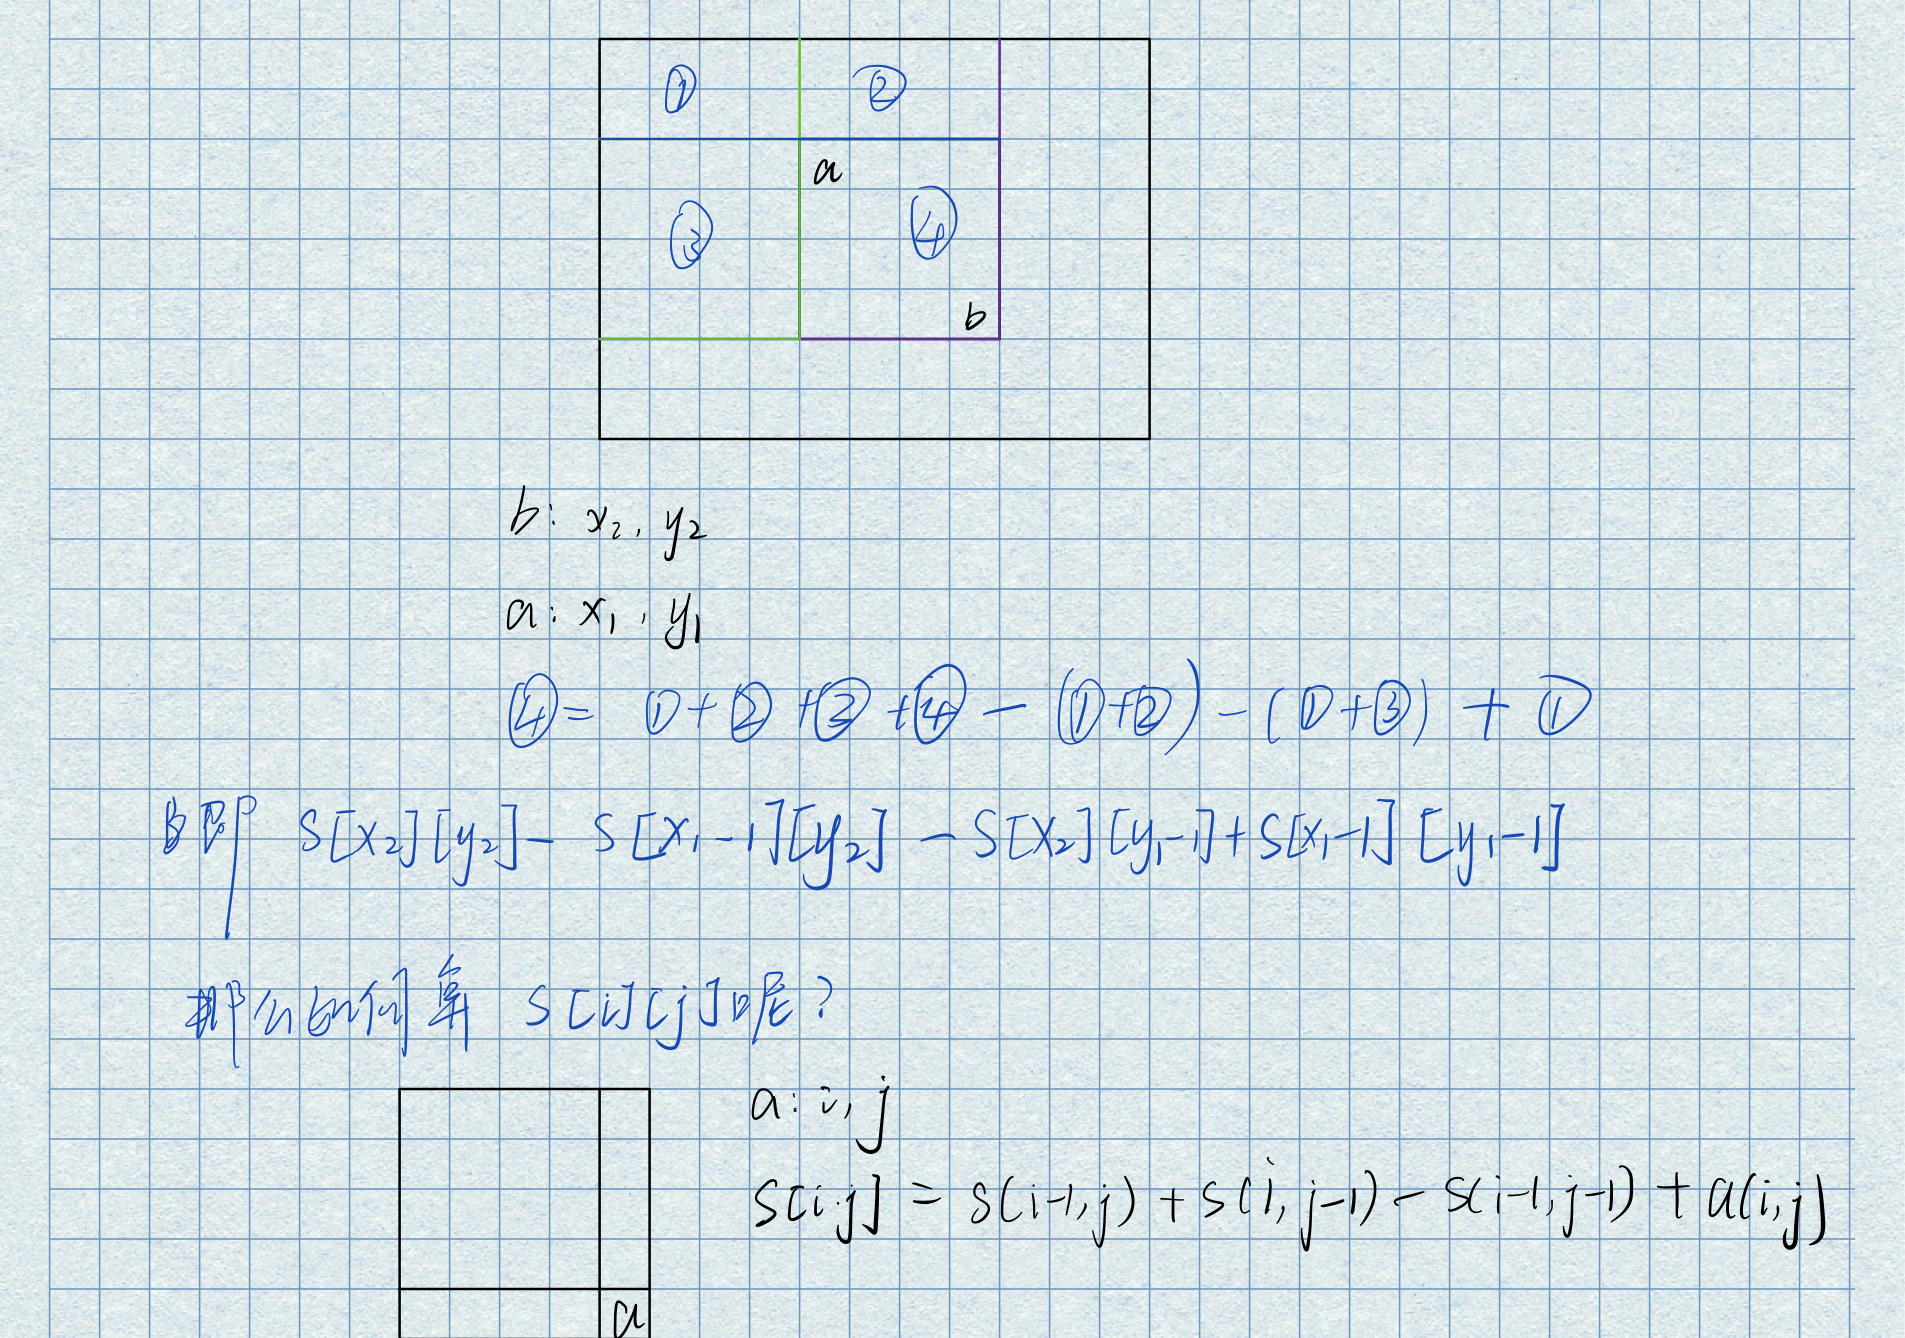 ① ②
a
③ ④
b
b: x₂, y₂
a: x₁, y₁
④= ①+②+③+④-(①+②)-(①+③)+①
即 S[x₂][y₂]-S[x₁-1][y₂]-S[x₂][y₁-1]+S[x₁-1][y₁-1]
那么如何算 S[i][j]呢?
a: i, j
S[i,j] = s(i-1,j)+s(i,j-1)-s(i-1,j-1)+a(i,j)
a